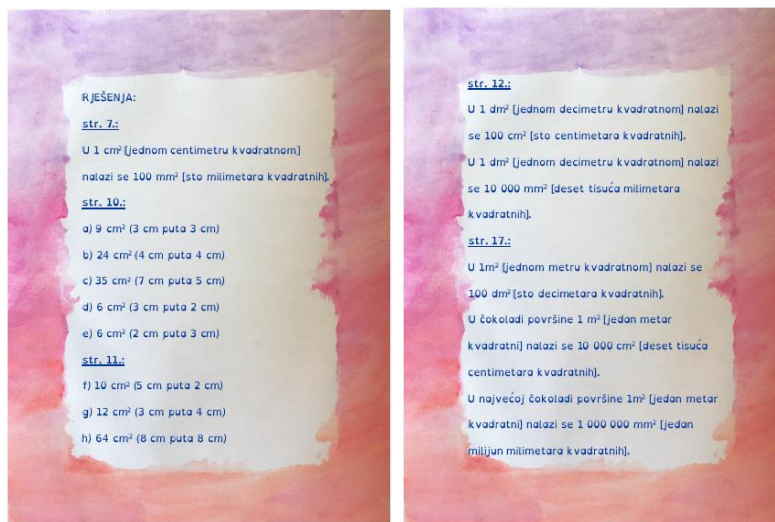 RJEŠENJA:
str. 7.:
U 1 cm² [jednom centimetru kvadratnom]
nalazi se 100 mm² [sto milimetara kvadratnih].
str. 10.:
a) 9 cm² (3 cm puta 3 cm)
b) 24 cm² (4 cm puta 4 cm)
c) 35 cm² (7 cm puta 5 cm)
d) 6 cm² (3 cm puta 2 cm)
e) 6 cm² (2 cm puta 3 cm)
str. 11.:
f) 10 cm² (5 cm puta 2 cm)
g) 12 cm² (3 cm puta 4 cm)
h) 64 cm² (8 cm puta 8 cm)
str. 12.:
U 1 dm² [jednom decimetru kvadratnom] nalazi
se 100 cm² [sto centimetara kvadratnih].
U 1 dm² [jednom decimetru kvadratnom] nalazi
se 10 000 mm² [deset tisuća milimetara
kvadratnih].
str. 17.:
U 1m² [jednom metru kvadratnom] nalazi se
100 dm² [sto decimetara kvadratnih].
U čokoladi površine 1 m² [jedan metar
kvadratni] nalazi se 10 000 cm² [deset tisuća
centimetara kvadratnih].
U najvećoj čokoladi površine 1m² [jedan metar
kvadratni] nalazi se 1 000 000 mm² [jedan
milijun milimetara kvadratnih].